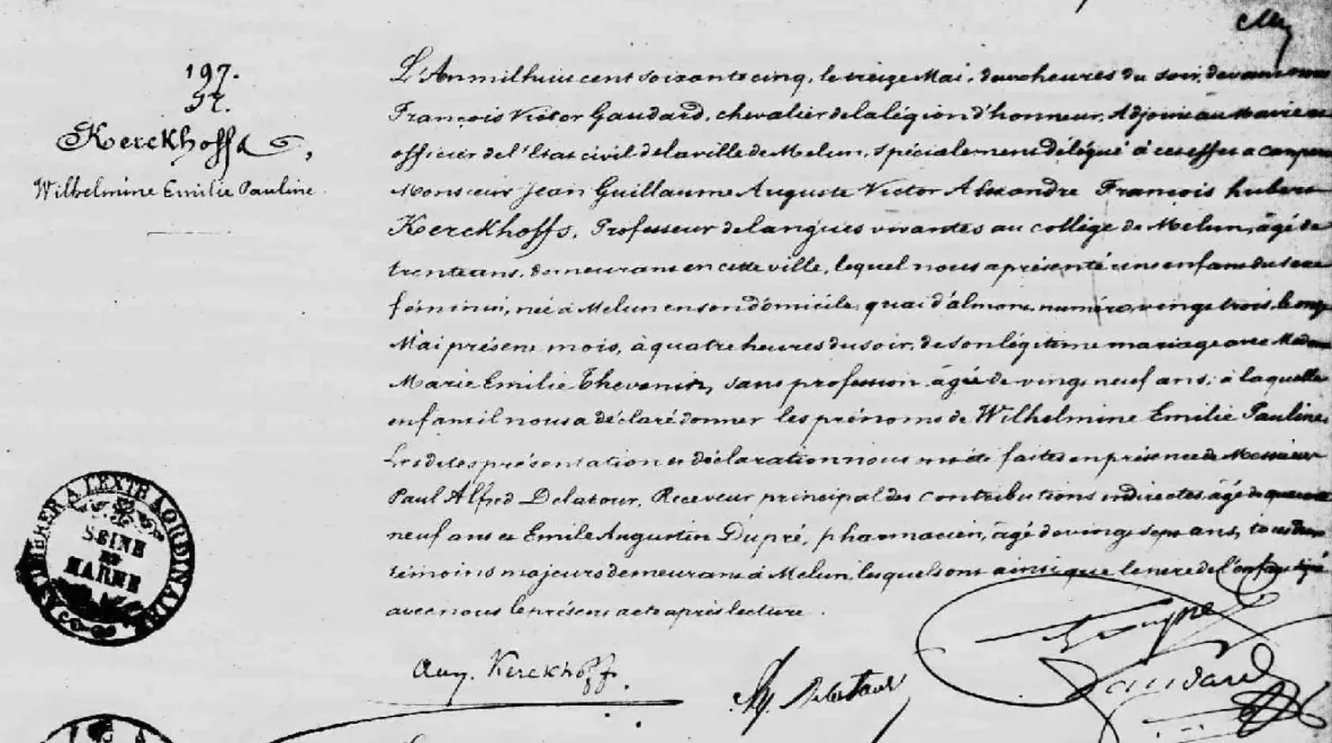 197.
57.
Kerckhoffs,
Wilhelmine Emilie Pauline.
L'An mil huit cent soixante cinq, le treize Mai, deux heures du soir, devant nous
François Victor Gaudard, chevalier de la légion d'honneur, Adjoint au Maire et
officier de l'Etat civil de la ville de Melun, spécialement délégué à cet effet a comparu
Monsieur Jean Guillaume Auguste Victor Alexandre François hubert
Kerckhoffs, Professeur de langues vivantes au collège de Melun, âgé de
trente ans, demeurant en cette ville, lequel nous a présenté un enfant du sexe
féminin, née à Melun en son domicile, quai d'almont, numéro vingt trois, le onze
Mai présent mois, à quatre heures du soir, de son légitime mariage avec Madame
Marie Emilie Thevenin, sans profession, âgée de vingt neuf ans, à laquelle
enfant il nous a déclaré donner les prénoms de Wilhelmine Emilie Pauline.
Les dites présentation et déclaration nous ont été faites en présence de Messieurs
Paul Alfred Delatour, Receveur principal des contributions indirectes, âgé de quarante
neuf ans et Emile Augustin Dupré, pharmacien, âgé de vingt sept ans, tous deux
témoins majeurs demeurant à Melun, lesquels ont ainsi que le père de l'enfant signé
avec nous le présent acte après lecture.
Aug. Kerckhoffs.
Delatour
Gaudard
A TIMBRER A L'EXTRAORDINAIRE
SEINE
ET
MARNE